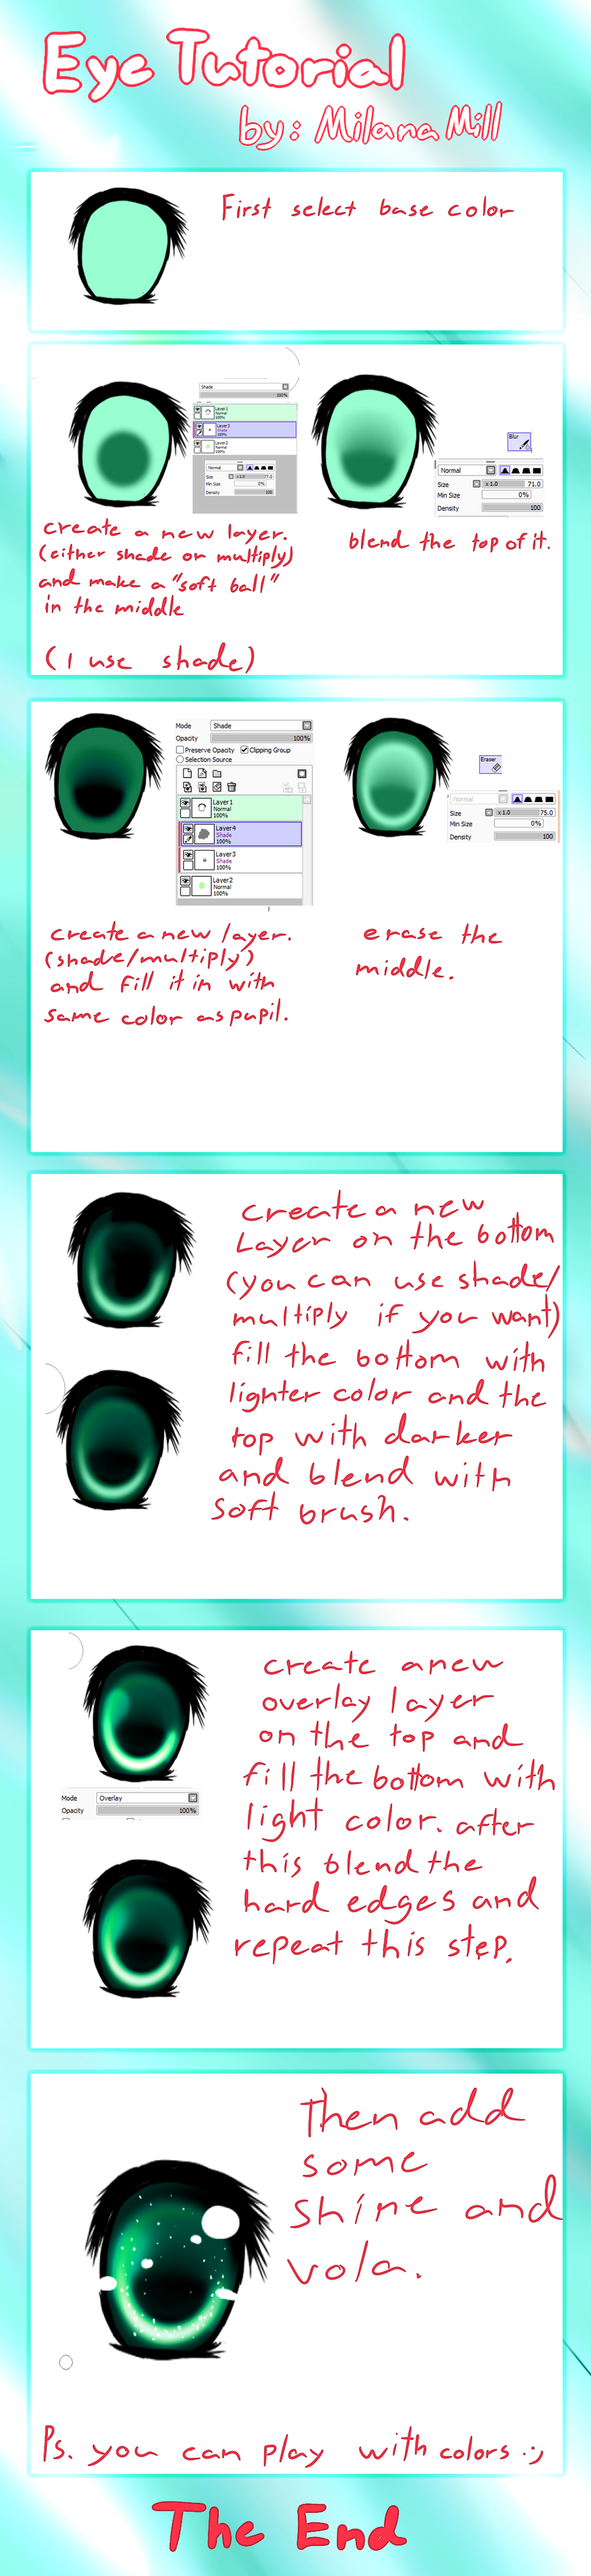 Eye Tutorial
by: Milana Mill
First select base color
Shade
100%
Layer1
Normal
100%
Layer3
Shade
100%
Layer2
Normal
100%
Normal
Size x 1.0 77.1
Min Size 0%
Density 100
create a new layer.
(either shade or multiply)
and make a "soft ball"
in the middle
(I use shade)
Blur
Normal
Size x 1.0 71.0
Min Size 0%
Density 100
blend the top of it.
Mode Shade
Opacity 100%
Preserve Opacity Clipping Group
Selection Source
Layer1
Normal
100%
Layer4
Shade
100%
Layer3
Shade
100%
Layer2
Normal
100%
create a new layer.
(shade/multiply)
and fill it in with
same color as pupil.
Eraser
Normal
Size x 1.0 75.0
Min Size 0%
Density 100
erase the
middle.
create a new
Layer on the bottom
(you can use shade/
multiply if you want)
fill the bottom with
lighter color and the
top with darker
and blend with
soft brush.
create a new
overlay layer
on the top and
fill the bottom with
light color. after
this blend the
hard edges and
repeat this step.
Mode Overlay
Opacity 100%
Then add
some
shine and
vola.
Ps. you can play with colors :;)
The End